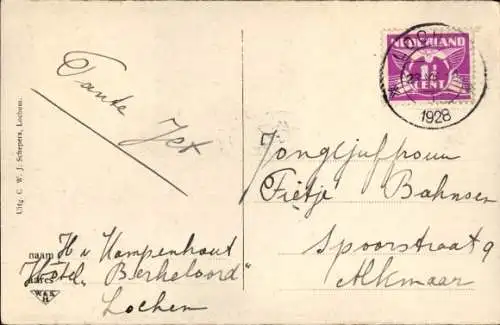 Tante
Jet
Uitg. C. W. J. Schepers, Lochem.
naam H v Kampenhout
adres Hôtel „Berkeloord"
Lochem
NEDERLAND
1½
CENT
1928
Jongejuffrouw
Fietje Bahnsen
Spoorstraat 9
Alkmaar